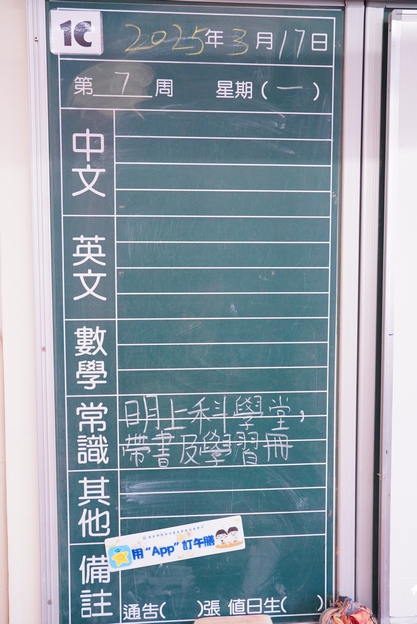 1C 2025年3月17日
第7周 星期(一)
中文
英文
數學
常識 明上科學堂,
帶書及學習冊
其他
用"App"訂午膳
備註
通告( )張 值日生( )